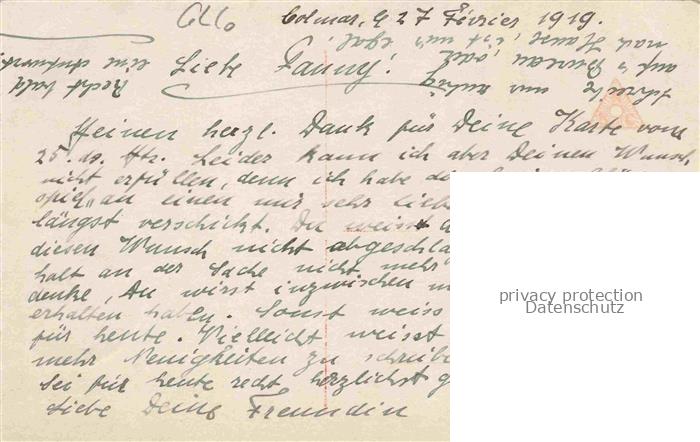 Colmar, 27 Février 1919.
Liebe Fanny!
Meinen herzl. Dank für Deine Karte vom
25. ds. Mts. Leider kann ich aber Deinen Wunsch
nicht erfüllen, denn ich habe
an einen mir sehr
längst verschickt. Du weisst
diesen Wunsch nicht
halt an der Sache nicht mehr
denke, Du wirst inzwischen
erhalten haben. Sonst weiss
für heute. Vielleicht weisst
mehr Neuigkeiten zu
Sei für heute recht herzlichst
Liebe Deine Freundin
Schreibe nur ruhig
auf's Bureau oder
nach Hause, ist mir egal!
Recht bald
ein
privacy protection
Datenschutz